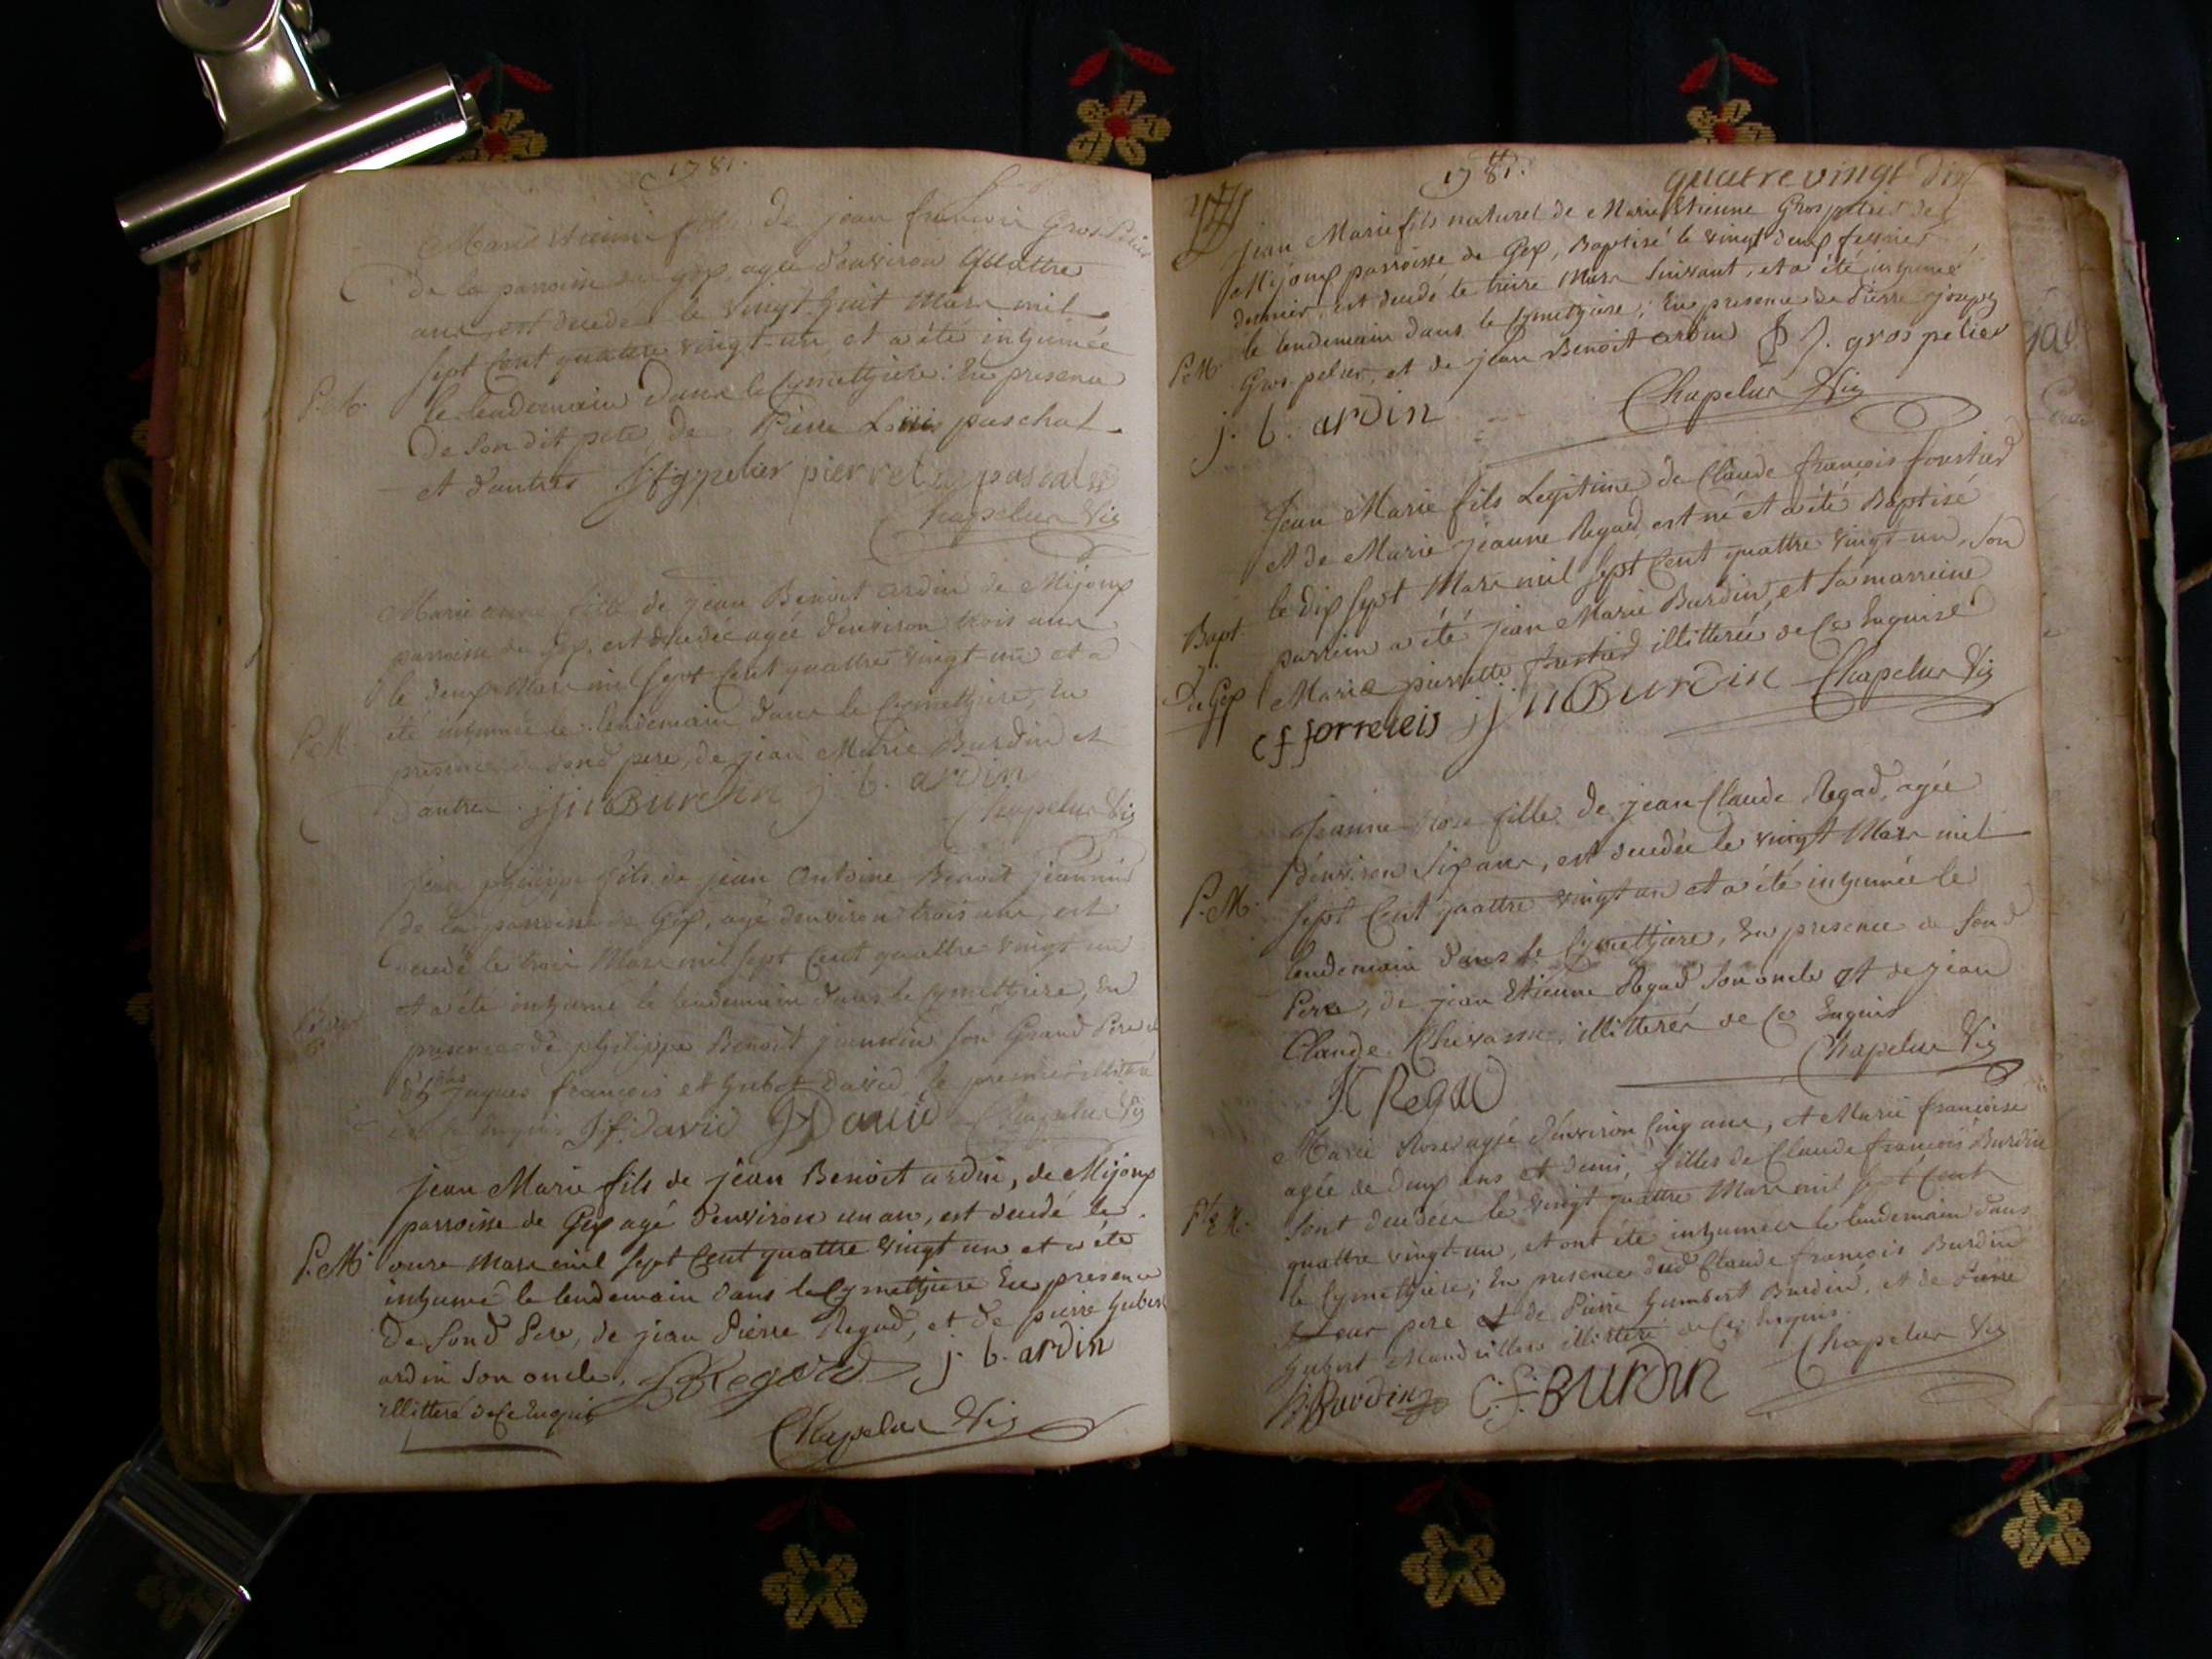 1781.
Marie Etienne fille de jean francois Gros Pelier
de la parroisse de Gex, agée d'environ quattre
ans est decedée le vingt huit Mars mil
sept Cent quattre vingt-un, et a été inhumée
P. M. le lendemain dans le Cymettjere: En presence
de son dit pere, de Pierre Loüis paschal
et d'autres pierre pascal
Chapelux Vic
Marie anne fille de jean Benoit ardin de Mijoux
parroisse de Gex, est decedée agée d'environ trois ans
le deux Mars mil sept Cent quattre vingt-un et a
été inhumée le lendemain dans le Cymettjere, En
P. M. presence de sond pere, de jean Marie Burdin et
d'autres. j m Burdin j. b. ardin
Chapelux Vic
jean philippe fils de jean Antoine Benoit jeannin
de la parroisse de Gex, agé d'environ trois ans, est
decedé le trois Mars mil sept Cent quattre vingt un
et a été inhumé le lendemain dans le Cymettjere, En
presence de philippe Benoit jeannin son Grand Pere et
de jaques francois et hubert david, le premier illitteré
de ce Enquis J f. david H David Chapelux Vic
jean Marie fils de jean Benoit ardin, de Mijoux
parroisse de Gex agé d'environ un an, est decedé le
P. M. onze Mars mil sept Cent quattre vingt un et a été
inhumé le lendemain dans le Cymettjere En presence
de sond Pere, de jean Pierre Regad, et de pierre hubert
ardin son oncle, Regad j. b. ardin
illitteré de Ce Enquis
Chapelux Vic
1781. quatre vingt dix
jean Marie fils naturel de Marie Etienne Gros pelier de
Mijoux parroisse de Gex, Baptisé le vingt deux fevrier
dernier, est decedé le treize Mars suivant, et a été inhumé
le lendemain dans le Cymettjere; En presence de Pierre joseph
P. M. Gros-pelier, et de jean Benoit ardin P J. gros pelier
j. b. ardin Chapelux Vic
Jean Marie fils Legitime de Claude françois forestier
et de Marie jeanne Regad, est né et a été Baptisé
le dix sept Mars mil sept Cent quattre vingt-un, son
Bapt. parrein a été jean Marie Burdin, et sa marreine
de Gex Marie pierrette forestier illitterée de Ce Enquise
c f forreteis j m Burdin Chapelux Vic
Jeanne Rose fille de jean Claude Regad, agée
d'environ six ans, est decedée le vingt Mars mil
P. M. sept Cent quattre vingt un et a été inhumée le
lendemain dans le Cymettjere, En presence de sond
Pere, de jean Etienne Regad son oncle et de jean
Claude Chevassu, illitterés de Ce Enquis
Chapelux Vic
J C Regad
Marie Rose agée d'environ Cinq ans, et Marie françoise
agée de deux ans et demi, filles de Claude francois Burdin
sont decedées le vingt quattre Mars mil sept Cent
quattre vingt-un, et ont été inhumées le lendemain dans
le Cymettjere; En presence dud Claude françois Burdin
Leur pere et de Pierre humbert Burdin, et de Pierre
hubert Mandrillon illitteré de Ce Enquis.
Chapelux Vic
Burdin C. f. Burdin